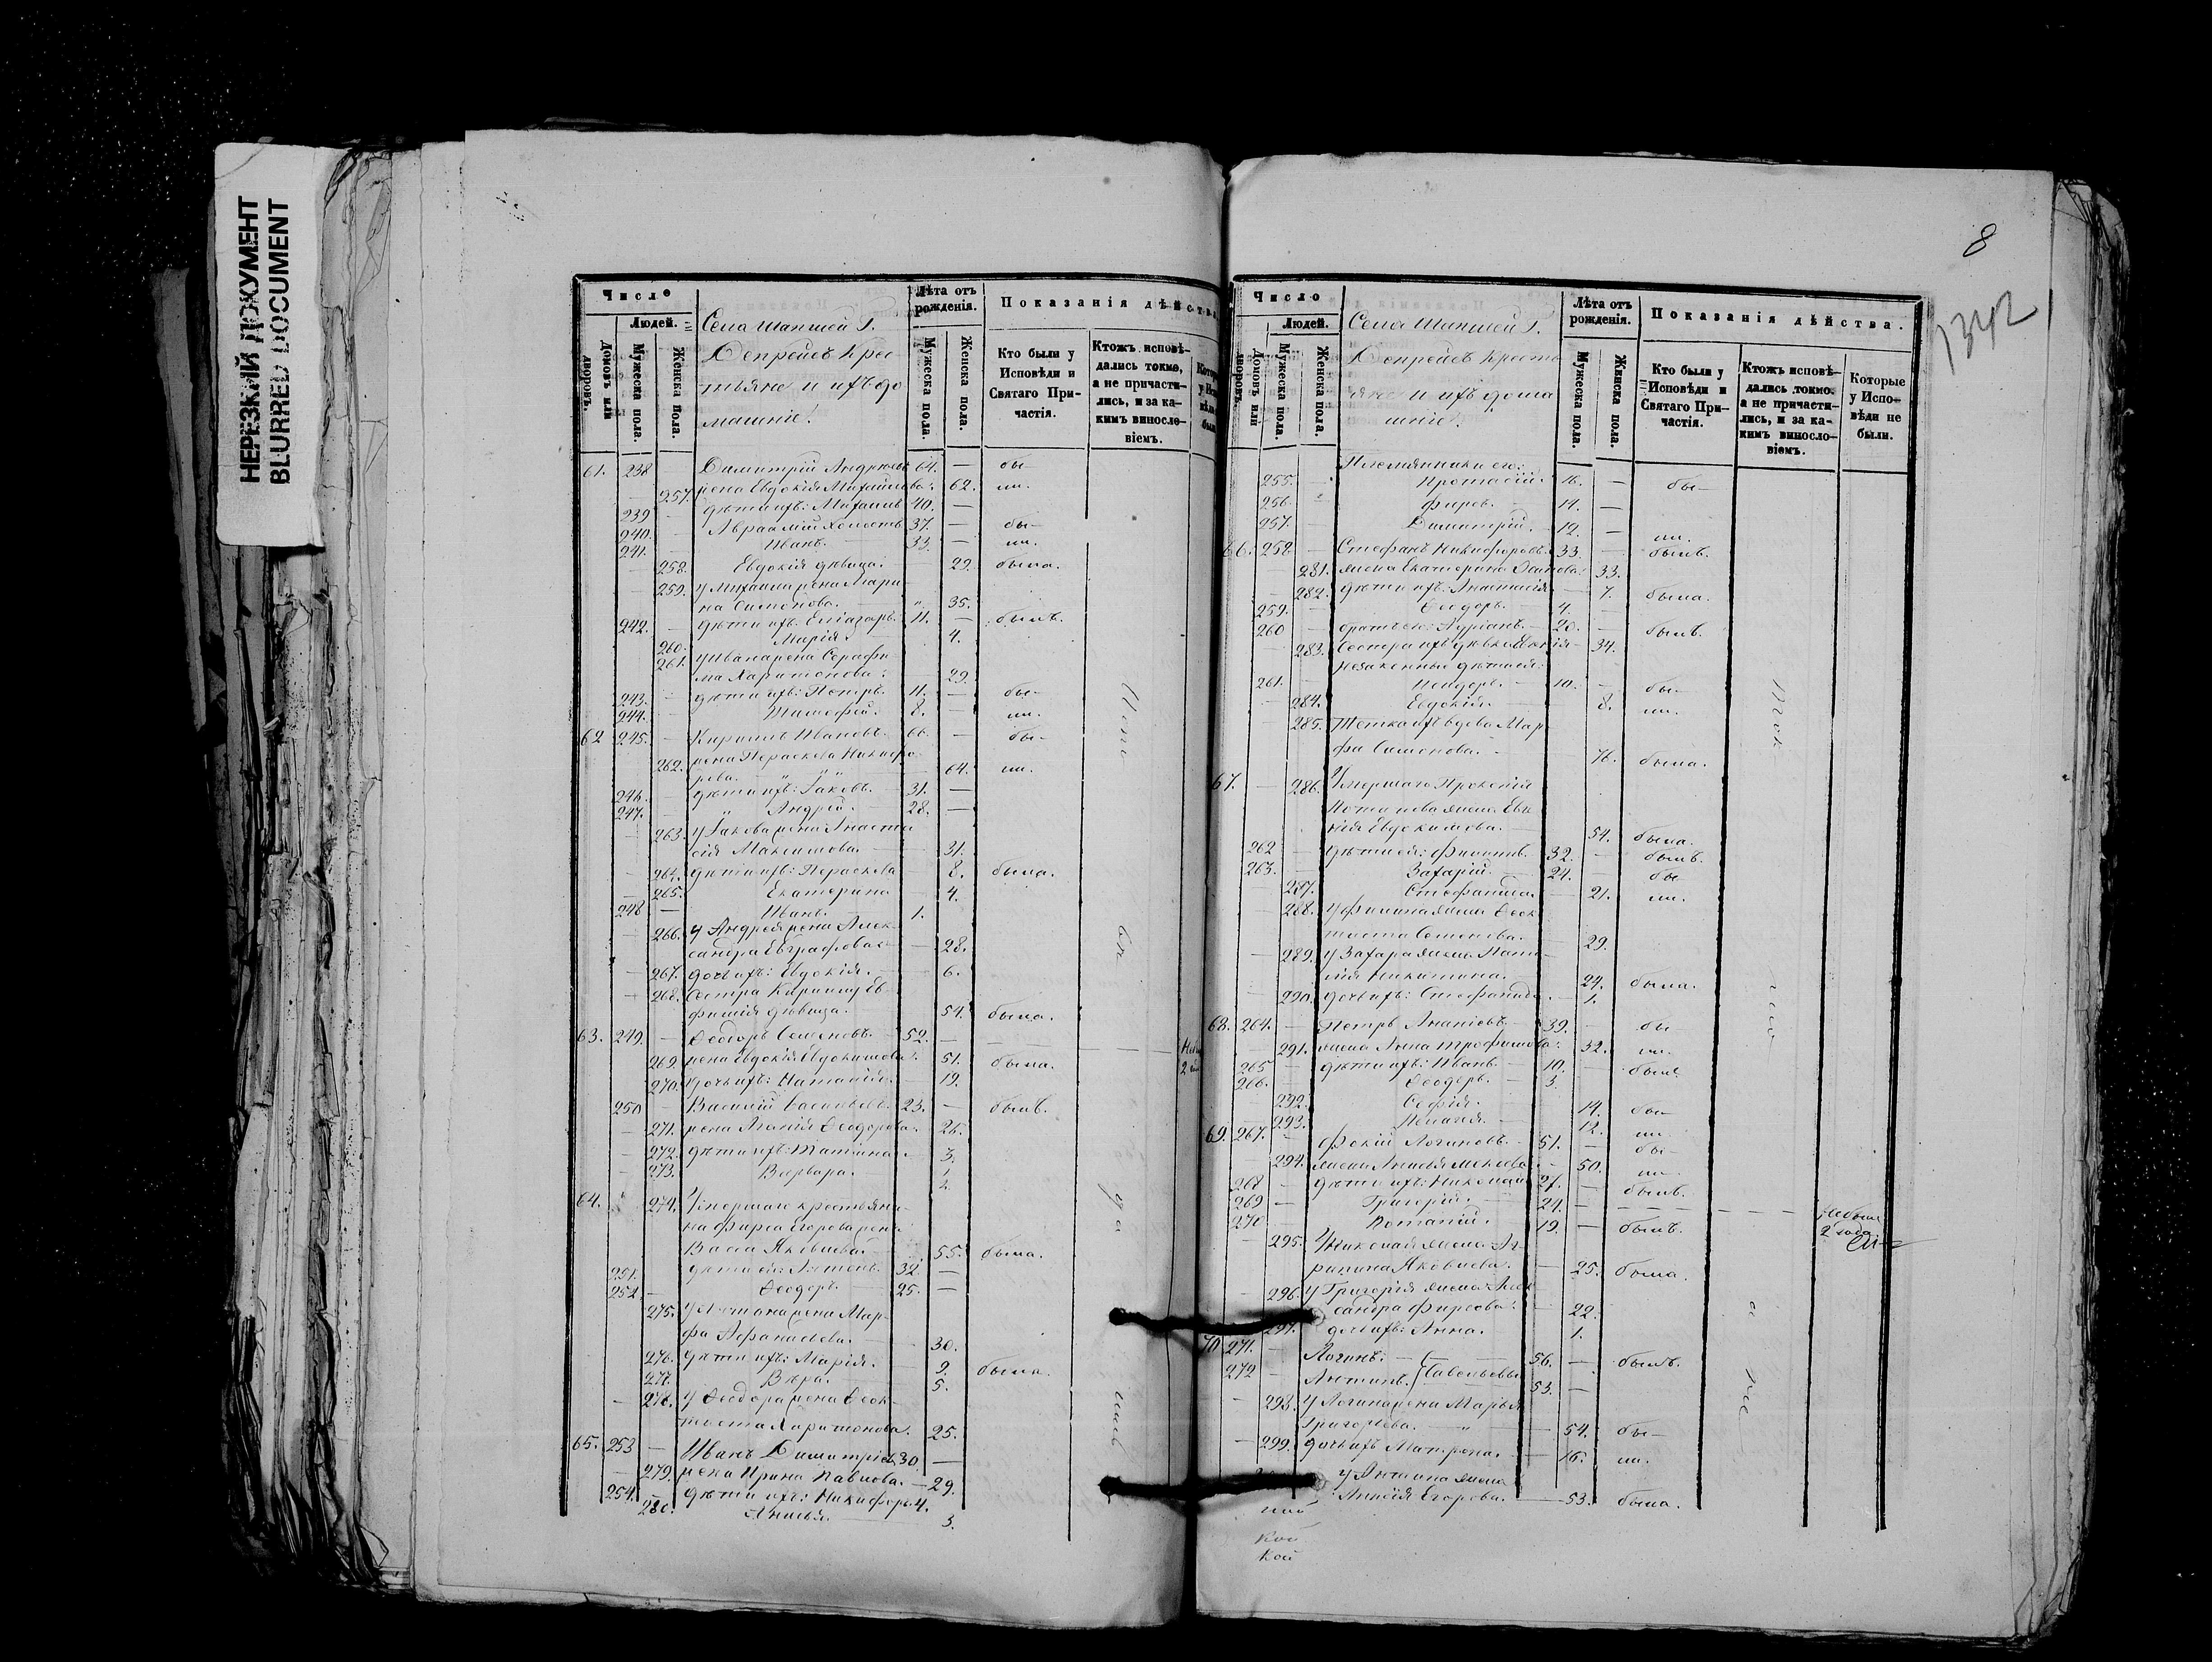 НЕРЕЗКИЙ ДОКУМЕНТ
BLURRED DOCUMENT
Число
Людей.
Домовъ или дворовъ.
Мужеска пола.
Женска пола.
Села Шапшей Г.
Депрейсъ Крес-
тьяне и ихъ до
машніе.
Лѣта отъ рожденія.
Мужеска пола.
Женска пола.
Показанія дѣйства
Кто были у Исповѣди и Святаго Причастія.
Ктожъ исповѣдались токмо, а не причастились, и за какимъ винословіемъ.
61. 238 Димитрій Андреевъ 64. — бы
257. жена Евдокія Михайлова. 62. ли.
239 дѣти ихъ: Михаилъ 40. —
240. Авраамій холостъ 37. — бы-
241. Иванъ. 33. — ли.
258. Евдокія дѣвица. 29. была.
259. у Михаила жена Мари
на Симонова. 35.
242. дѣти ихъ: Еліазаръ. 11. — былъ.
260. Марія. 4.
261. у Ивана жена Серафи
ма Харитонова. 29.
243. дѣти ихъ: Петръ. 11. — бы-
244. Тимофей. 8. — ли.
62 245. Кириллъ Ивановъ. 66. — бы-
262. жена Параскева Никифо-
рова. 64. ли.
246. дѣти ихъ: Іаковъ. 31. —
247. Андрей. 28. —
263. у Іакова жена Анаста
сія Максимова. 31.
264. дѣти ихъ: Параскева 8. была.
265. Екатерина 4.
248 Иванъ. 1.
266. у Андрея жена Алек-
сандра Евграфова. 28.
267. дочь ихъ: Евдокія. 6.
268. Сестра Кирилла Ев-
фимія дѣвица. 54. была.
63. 249. Ѳеодоръ Семеновъ. 52. —
269. жена Евдокія Евдокимова. 51. была.
270. дочь ихъ: Наталія. 19.
250 Василій Васильевъ. 23. — былъ.
271. жена Агапія Ѳеодорова. 26.
272. дѣти ихъ: Татіана. 3.
273. Варвара. 1.
64. 274. Умершаго крестьяни-
на Фирса Егорова жена
Васса Яковлева. 55. была.
251. дѣти ея: Антонъ. 32. —
252. Ѳеодоръ. 25. —
275. у Антона жена Мар-
фа Афанасьева. 30.
276. дѣти ихъ: Марія. 9. была.
277. Вѣра. 5.
278. у Ѳеодора жена Ѳеок-
тиста Харитонова. 25.
65. 253 Иванъ Димитріевъ 30 —
279. жена Ирина Павлова. 29.
254. дѣти ихъ: Никифоръ 4.
280. Анисья. 3.
8
1342
Число
Людей.
Домовъ или дворовъ.
Мужеска пола.
Женска пола.
Села Шапшей Г.
Депрейсъ Кресть
яне и ихъ дома
шніе.
Лѣта отъ рожденія.
Мужеска пола.
Женска пола.
Показанія дѣйства.
Кто были у Исповѣди и Святаго Причастія.
Ктожъ исповѣдались токмо, а не причастились, и за какимъ винословіемъ.
Которые у Исповѣди не были.
Племянники его:
255. Протасій. 16. — бы-
256. Фирсъ. 14. —
257. Димитрій. 12. — ли.
66. 258. Стефанъ Никифоровъ. 33. — былъ.
281. жена Екатерина 33.
282. дѣти ихъ: Анастасія. 7. была.
259. Ѳеодоръ. 4. —
260 братъ его: Адріанъ 20. — былъ.
283. Сестра ихъ дѣвка 34.
Незаконныя дѣти ея:
261. Исидоръ. 10. — бы-
284. Евдокія. 8. ли.
285. Тетка ихъ вдова Мар-
фа Симонова. 76. была.
67. 286. Умершаго
Потапова жена Евг
нія Евдокимова. 54. была.
262 дѣти ея: Филиппъ. 32. — былъ.
263. Захарій. 24. — бы
287. Стефанида. 21. ли.
288. у Филиппа жена Ѳеок
тиста Семенова. 29.
289. у Захара жена Ната-
лія Никитина. 24. была.
290. дочь ихъ: Стефанида. 1.
68. 264. Петръ Ананіевъ. 39. — бы
291. жена Анна Трофимова. 32. ли.
265 дѣти ихъ: Иванъ. 10. — былъ.
266. Ѳеодоръ. 3.
292. Софія. 14. бы-
293. Пелагія. 12. ли.
69. 267. Фокій Логиновъ. 51. — бы-
294. жена Анисья 50. ли.
268 дѣти ихъ: Николай 27. — былъ.
269 Григорій. 24. — Не былъ 2 года
270 Потапій. 19. — былъ.
295. У Николая жена Аг-
рипина Яковлева. 25. была.
296. у Григорія жена Алек
сандра Фирсова. 22.
297. дочь ихъ: Анна. 1.
70 271. Логинъ. 56. — былъ.
272 Антипъ. Савельевы 53. —
298. у Логина жена Марья
Григорьева. 54. бы-
299. дочь ихъ Матрена. 16. ли.
у Антипа жена
Анисія Егорова. 53. была.
кой
кой